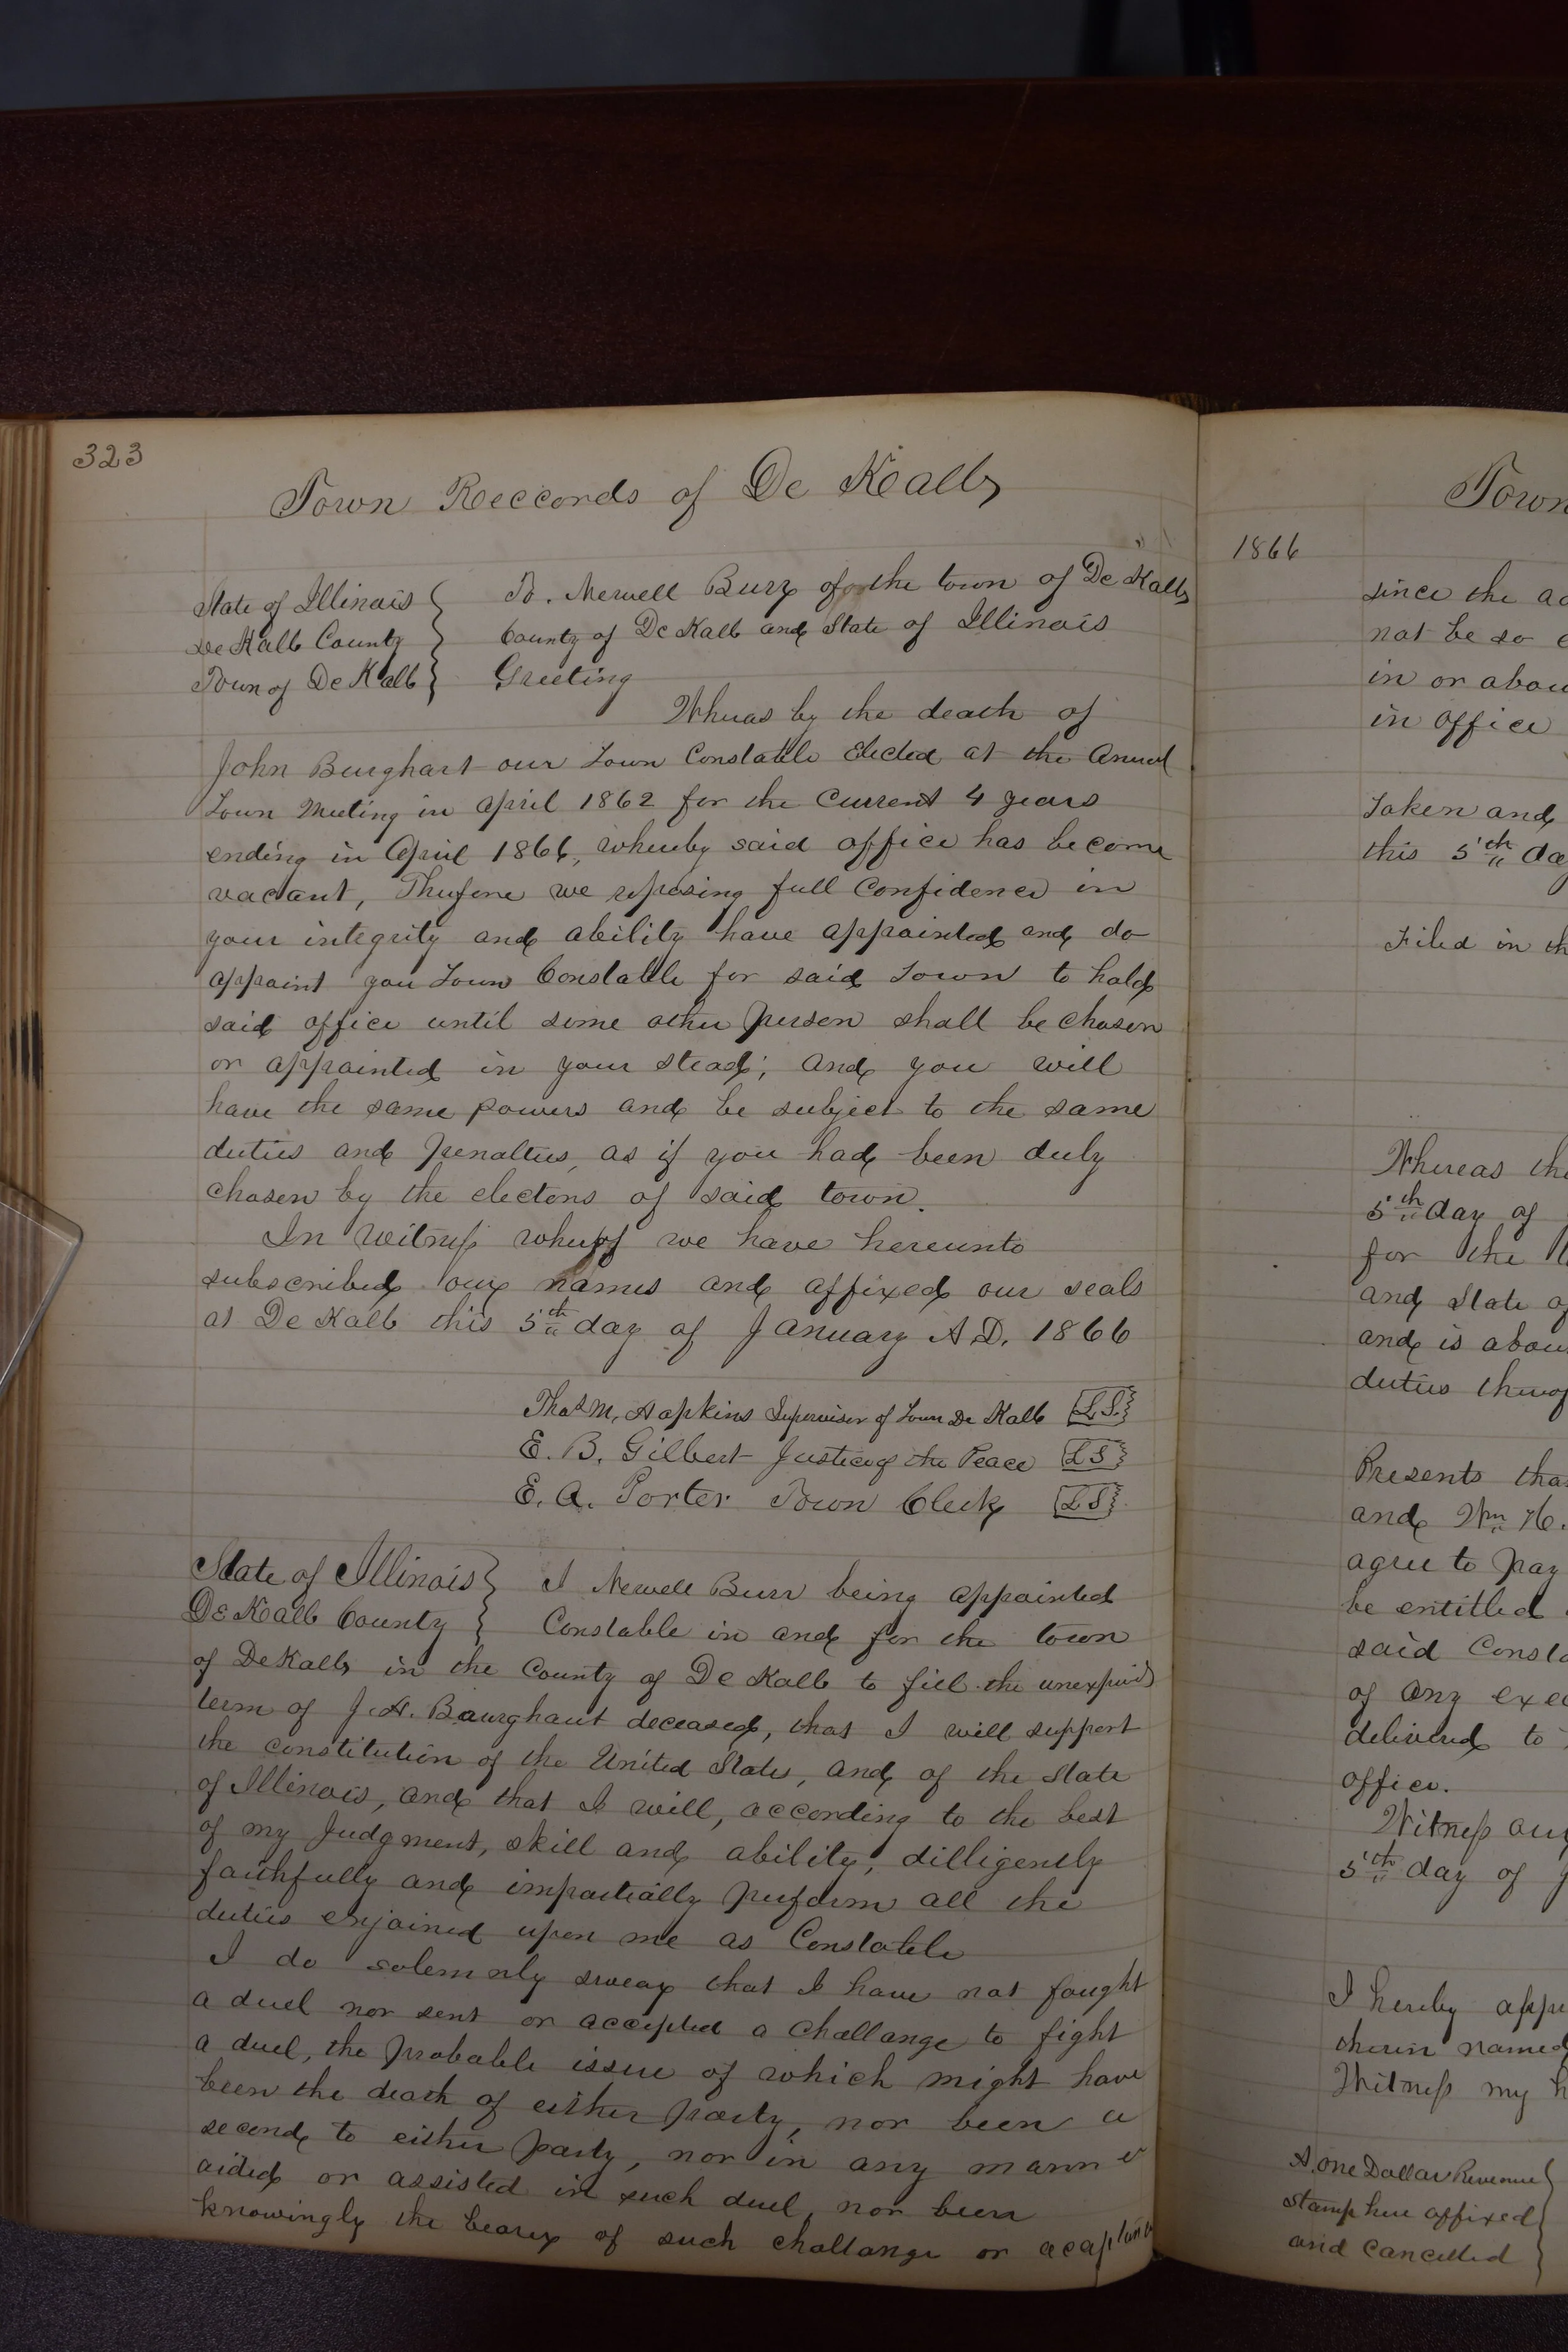 323
Town Reccords of De Kalb
State of Illinois To. Newell Burr of the town of De Kalb
De Kalb County County of De Kalb and State of Illinois
Town of De Kalb Greeting
Whereas by the death of
John Burghart our Town Constable Elected at the Annual
Town Meeting in April 1862 for the Current 4 years
ending in April 1866, whereby said office has become
vacant, Therefore we reposing full Confidence in
your integrity and ability have appointed and do
appoint you Town Constable for said Town to hold
said office until some other person shall be chosen
or appointed in your stead; and you will
have the same powers and be subject to the same
duties and penalties, as if you had been duly
chosen by the electors of said town.
In Witness whereof we have hereunto
subscribed our names and affixed our seals
at De Kalb this 5th day of January A.D. 1866
Thos M. Hopkins Supervisor of Town De Kalb L.S.
E. B. Gilbert Justice of the Peace L S
E. A. Porter Town Clerk L S
State of Illinois I Newell Burr being appointed
De Kalb County Constable in and for the town
of DeKalb in the County of De Kalb to fill the unexpired
term of J. H. Baurghart deceased, that I will support
the constitution of the United States, and of the State
of Illinois, and that I will, according to the best
of my Judgment, skill and ability, dilligently
faithfully and impartially perform all the
duties enjoined upon me as Constable
I do solemnly swear that I have not fought
a duel nor sent or accepted a challange to fight
a duel, the probable issue of which might have
been the death of either party, nor been a
second to either party, nor in any manner
aided or assisted in such duel, nor been
knowingly the bearer of such challange or
Town
1866
since the
not be so
in or
in office
Taken and
this 5th
Filed in
Whereas
5th day of
for the
and State of
and is
duties thereof
Presents
and Wm H.
agree to pay
be entitled
said
of any
delivered to
office.
Witness our
5th day of
I hereby
therein named
Witness my
A. One Dollar Revenue
stamp here affixed
and Cancelled